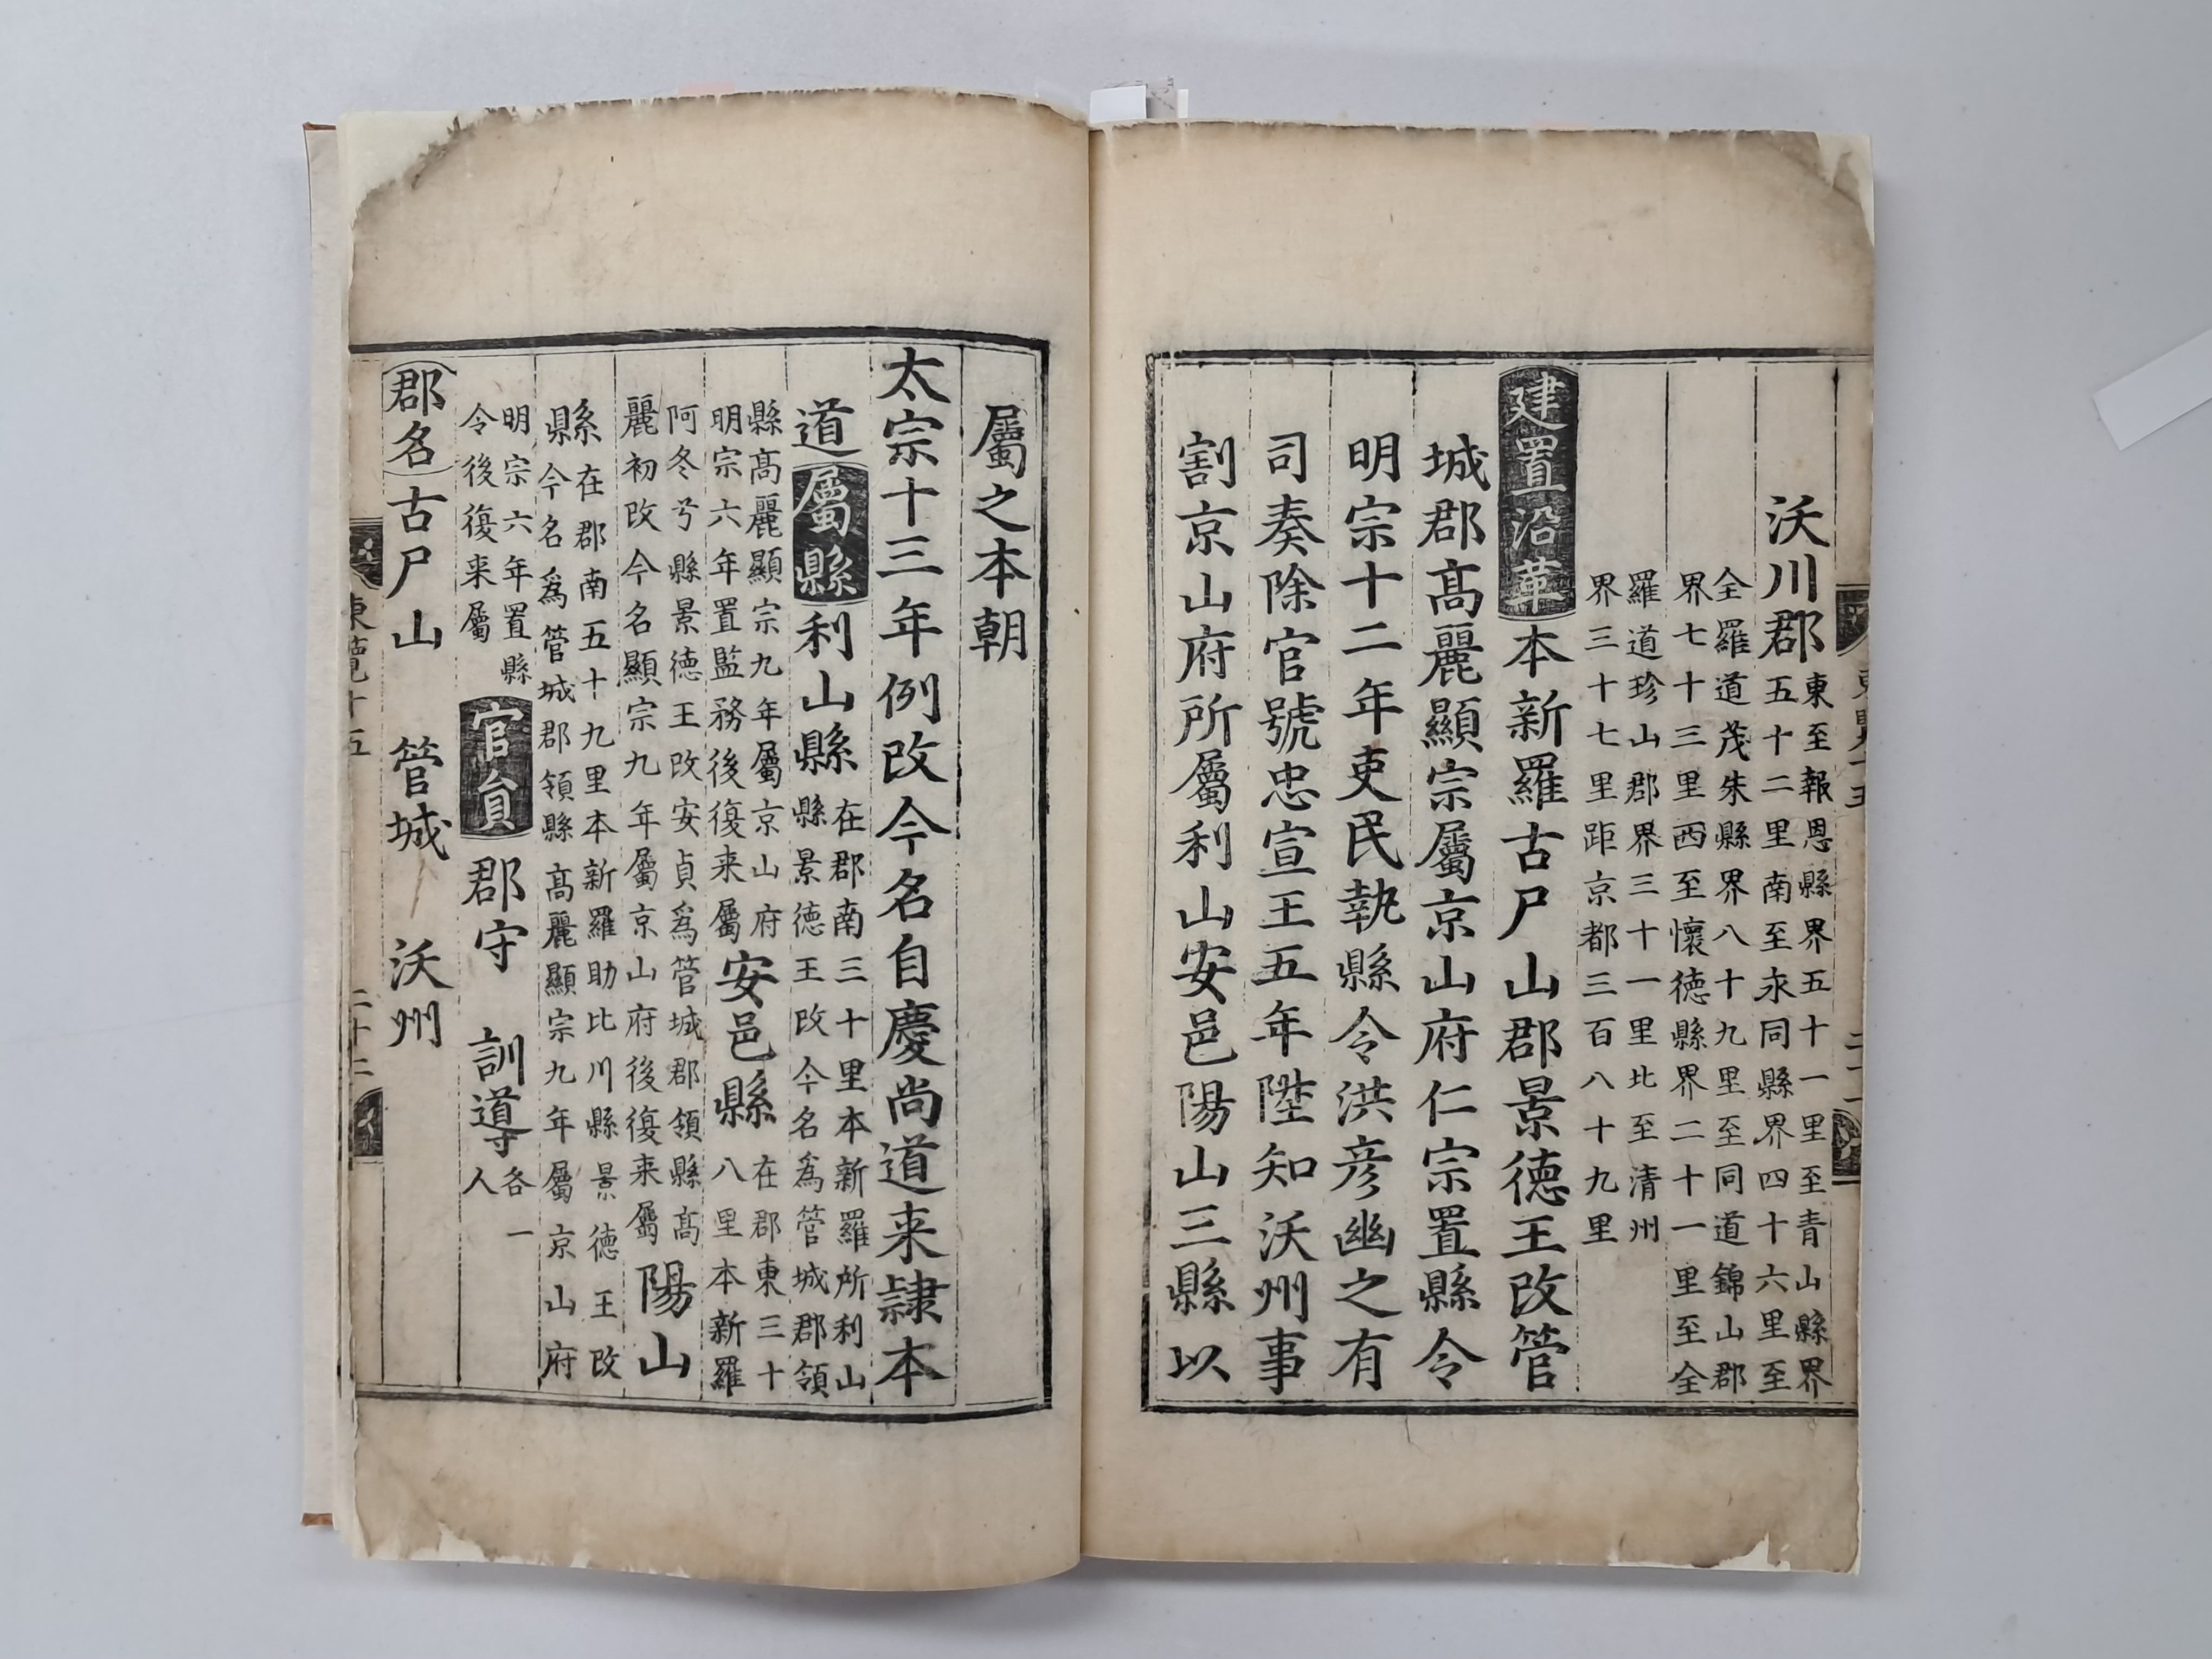 沃川郡
東至報恩縣界五十一里至青山縣界
五十二里南至永同縣界四十六里至
全羅道茂朱縣界八十九里至同道錦山郡
界七十三里西至懷徳縣界二十一里至全
羅道珍山郡界三十一里北至清州
界三十七里距京都三百八十九里
建置沿革本新羅古尸山郡景徳王改管
城郡髙麗顯宗屬京山府仁宗置縣令
明宗十二年吏民執縣令洪彦幽之有
司奏除官號忠宣王五年陞知沃州事
割京山府所屬利山安邑陽山三縣以
屬之本朝
太宗十三年例改今名自慶尚道来隷本
道屬縣利山縣
在郡南三十里本新羅所利山
縣景徳王改今名爲管城郡領
縣髙麗顯宗九年屬京山府
明宗六年置監務後復来屬
安邑縣
在郡東三十
八里本新羅
阿冬兮縣景徳王改安貞爲管城郡領縣髙
麗初改今名顯宗九年屬京山府後復来屬
陽山
縣
在郡南五十九里本新羅助比川縣景徳王改
今名爲管城郡領縣髙麗顯宗九年屬京山府
明宗六年置縣
令後復来屬
官員郡守 訓導
各一
人
郡名古尸山 管城 沃州
東覽十五 二十二